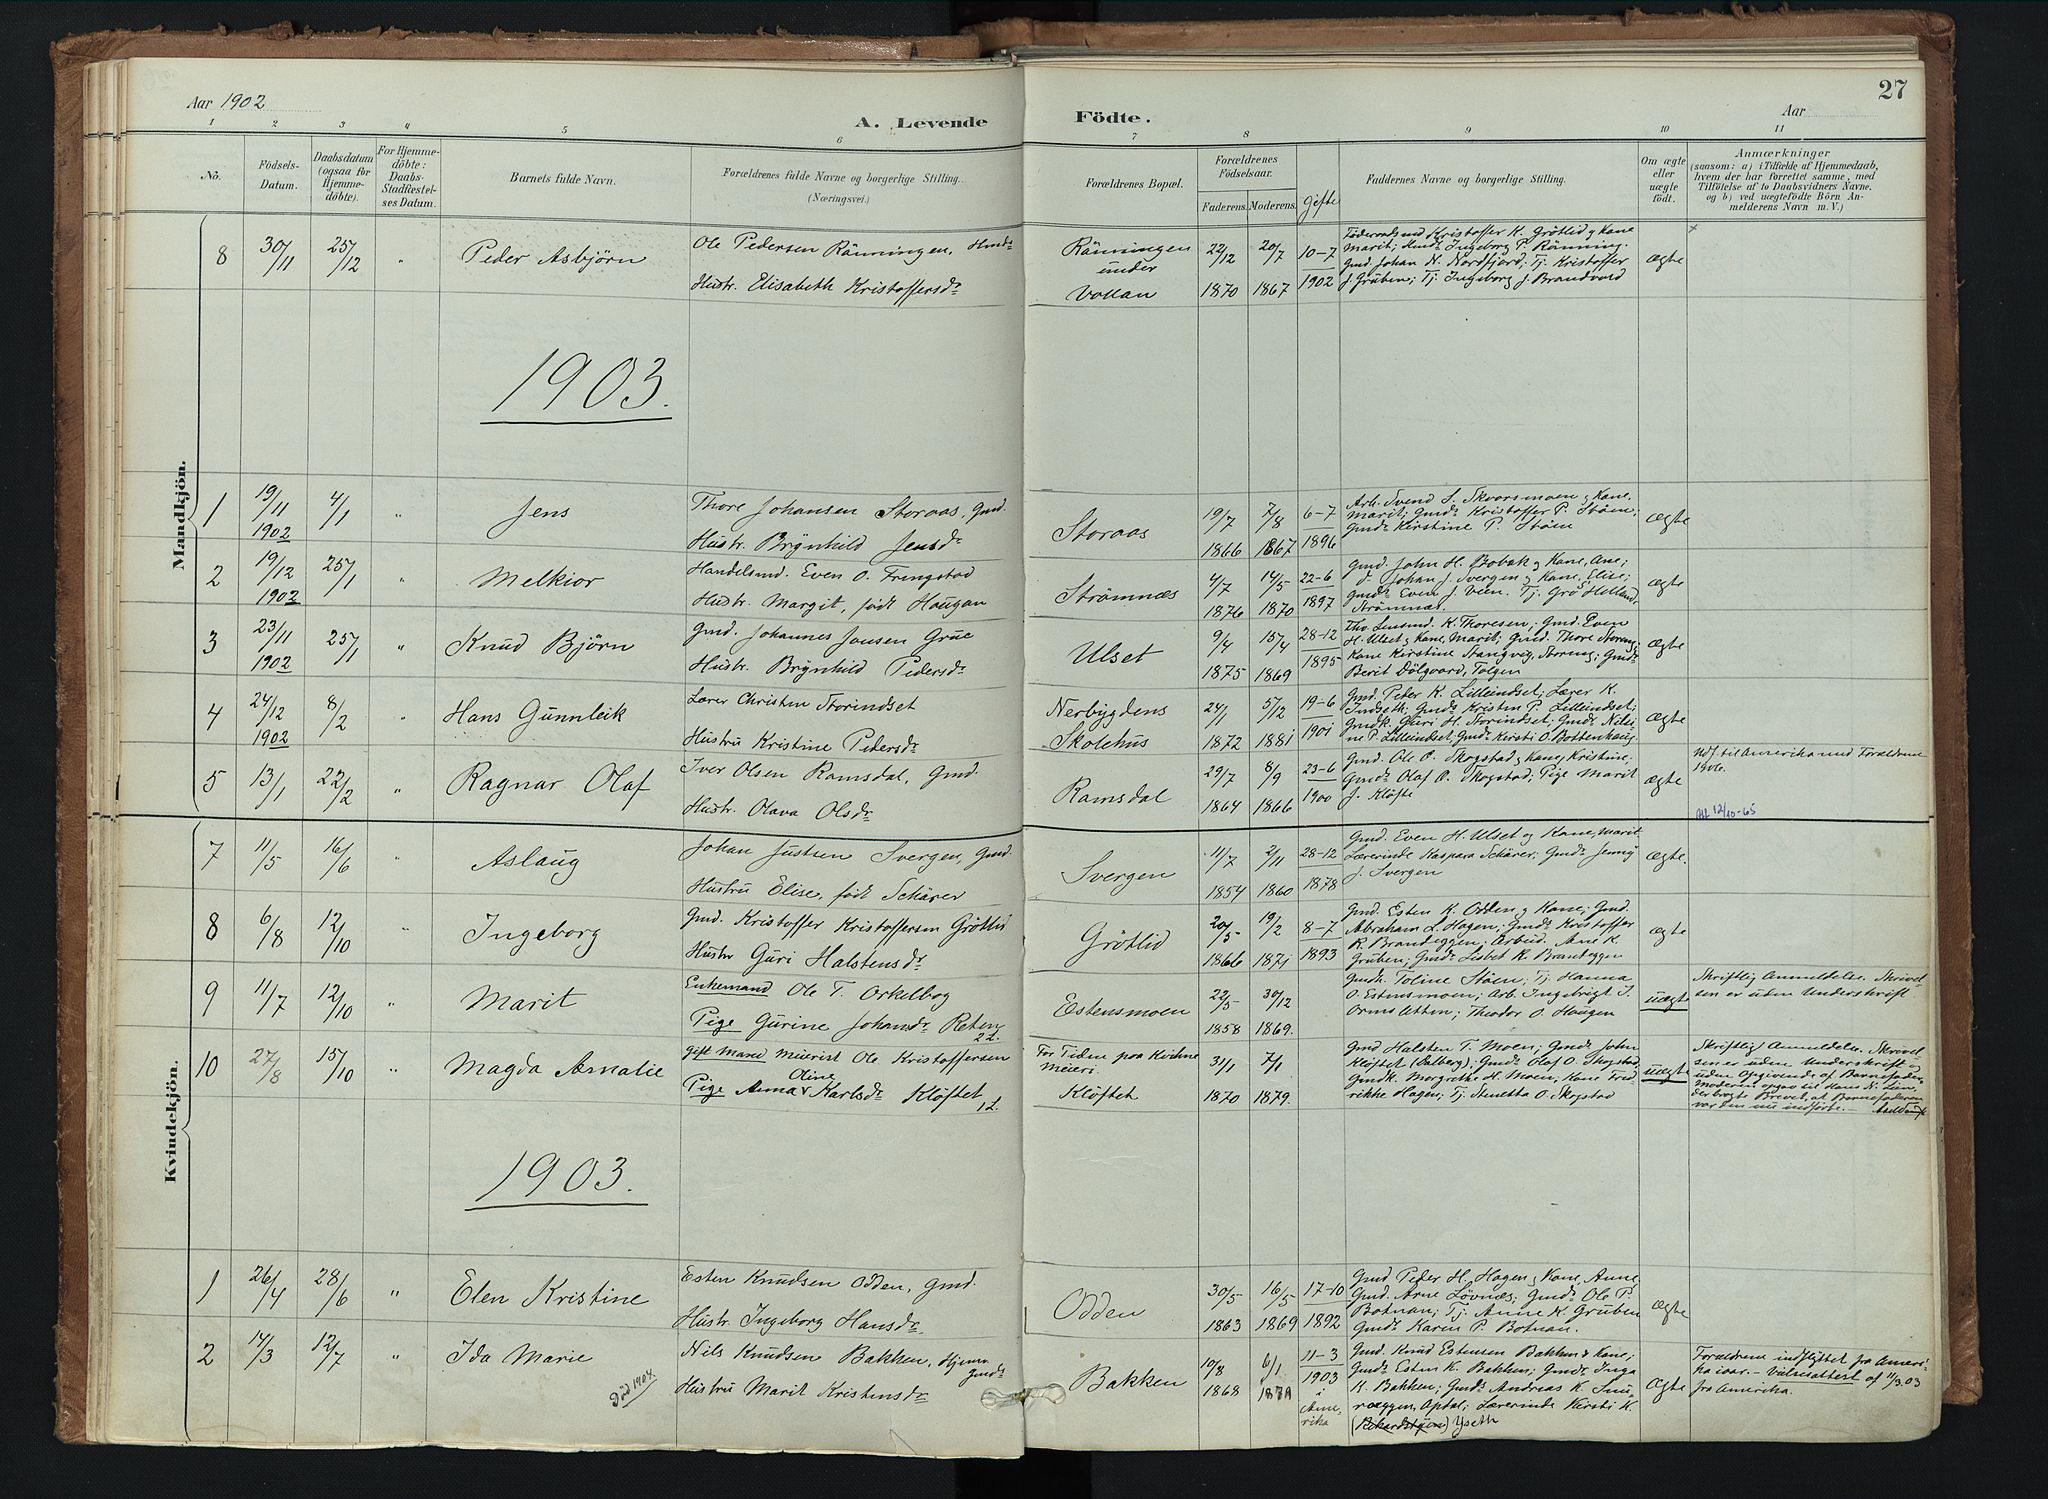 27
Aar 1902
A. Levende
Födte.
Aar
1 2 3 4 5 6 7 8 9 10 11
No.
Födsels-
Datum.
Daabsdatum
(ogsaa før
Hjemme-
döbte).
For Hjemme-
döbte:
Daabs-
Stadfæstel-
ses Datum.
Barnets fulde Navn.
Forældrenes fulde Navne og borgerlige Stilling.
(Næringsvei.)
Forældrenes Bopæl.
Forældrenes
Födselsaar.
Faderens. Moderens.
Gifte
Faddernes Navne og borgerlige Stilling.
Om ægte
eller
uægte
født.
Anmærkninger
(saasom: a) i Tilfælde af Hjemmedaab,
hvem der har forrettet samme, med
Tilföielse af to Daabsvidners Navne,
og b) ved uægtefödte Börn An-
melderens Navn m. V.)
Mandkjön.
8 30/11 25/12 " Peder Asbjörn
Ole Pedersen Rönningen, Hmd.
Hustr. Elisabeth Kristoffersdr
Rönningen
under
Vollan
22/12 1870 20/7 1867 10-7 1902
Föderaadsmd Kristoffer K. Grötlid & Kane
Marit; Hmdr Ingeborg P. Rönning.
Gmd. Johan N. Nordfjord; Tj. Kristoffer
J. Grüben; Tj. Ingeborg J. Brandvold
Ægte
1903.
1 19/11 1902 4/1 " Jens
Thore Johansen Storaas, Gmd.
Hustr. Brynhild Jensdr
Storaas
19/7 1866 7/8 1867 6-7 1896
Arb. Svend S. Skvorsmoen & Kane
Marit; Gmdr Kristoffer P. Stöen;
Gmdr Kirstine P. Stöen
Ægte
2 19/12 1902 25/1 " Melkior
Handelsmd. Even O. Fringstad
Hustr. Margit, født Haugan
Strömnæs
4/7 1876 14/5 1870 22-6 1897
Gmd. John H. Bobak & Kane, Ane;
d. Johan J. Svergen & Kane, Elise;
Gmdr Even J. Veen. Tj. Gro Helland,
Strömnæs.
Ægte
3 23/11 1902 25/1 " Knud Björn
Gmd. Johannes Jonsen Grue
Hustr. Brynhild Pedersdr
Ulset
9/4 1875 15/4 1869 28-12 1895
Thv. Lensmd. K. Thoresen; Gmd. Even
H. Ulset & Kane, Marit; Gmd. Thore
Kane Kirstine Stangvig, Storeng; Gmdr
Berit Dölgaard, Tolgen
Ægte
4 24/12 1902 8/2 " Hans Gunnleik
Lærer Christen Storindset
Hustru Kristine Pedersdr
Nerbygdens
Skolehus
24/1 1872 5/12 1881 19-6 1901
Gmd. Peder K. Lilleindset; Lærer K.
Indseth; Gmdr Kristen P. Lilleindset;
Gmdk. Guri H. Storindset; Gmdr Niki-
ne P. Lilleindset, Gmdr Kirsti O. Bottenhaug
Ægte
5 13/1 22/2 " Ragnar Olaf
Iver Olsen Ramsdal, Gmd.
Hustr. Olava Olsdr
Ramsdal
29/7 1864 8/9 1866 23-6 1900
Gmd. Ole O. Skogstad & Kane, Kristine;
Gmdr Olaf O. Skogstad; Pige Marit
J. Kløfte
Ægte
Udf. til Amerika med Forældrene
1906.
12/10-65
Kvindekjön.
7 11/5 16/6 " Aslaug
Johan Justsen Svergen, Gmd.
Hustru Elise, født Schärer
Svergen
11/7 1854 2/11 1860 28-12 1878
Gmd. Even H. Ulset og Kane, Marit
Lærerinde Kaspara Schärer; Gmdr Jenny
J. Svergen
Ægte.
8 6/8 12/10 " Ingeborg
Gmd. Kristoffer Kristoffersen Grötlid
Hustr Guri Halstensdr
Grötlid
20/5 1866 19/2 1871 8-7 1893
Gmd. Esten K. Odden & Kane; Gmd.
Abraham L. Hagen; Gmdr Kristoffer
R. Brandeggen; Arbeid. Ane K.
Gruben; Gmdr Lisbet K. Brandeggen
Ægte
9 11/7 12/10 " Marit
Enkemand Ole T. Orkelbog
Pige Gurine Johansdr Reten 2 L.
Estensmoen
22/5 1858 30/12 1869.
Gmdr Toline Stöen; Tj. Hanna
O. Estensmoen; Arb. Ingebrigt I.
Ormsetten; Theodor O. Haugen
uægte
Skriftlig Anmeldelse. Skrivel-
sen er uden Underskrift
10 27/8 15/10 " Magda Amalie
gift Mand Meierist Ole Kristoffersen
Pige Anna Oline Karlsdr Klöftet 1 L.
For Tiden paa Kvikne
Meieri
Klöftet
31/1 1870 7/1 1879.
Gmd Halsten T. Moen; Gmdr John
Klöftet (Dalberg); Gmdr Olaf O. Skogstad;
Gmdk. Margrethe H. Moen, Kane Fred-
rikke Hagen; Tj. Anetta O. Skogstad
uægte
Skriftlig Anmeldelse. Skrivel-
sen er uden Underskrift og
uden Opgivende af Barnefader.
Moderen opgav til Hans N. Lien,
der bragte Brevet, at Barnefaderen
var den nu indførte.
1903.
1 26/4 28/6 " Elen Kristine
Esten Knudsen Odden, Gmd.
Hustr. Ingeborg Hansdr
Odden
30/5 1863 16/5 1869 17-10 1892
Gmd Peder H. Hagen & Kane, Anne
Gmd. Arne Lövnæs; Gmdr Ole P.
Botnan; Tj. Anne K. Gruben
Gmdr Karen P. Botnan.
Ægte
2 14/3 12/7 " Ida Marie
Död 1904.
Nils Knudsen Bakken, Hjemme Gmdr
Hustru Marit Kristensdr
Bakken
10/8 1868 6/1 11-3 1903 i Ame-
rika
Gmd. Knud Estensen Bakken & Kane;
Gmdr Esten K. Bakken; Gmdr Inga
K. Bakken; Gmdr Andreas K. Inu-
roæggen, Opdal; Lærerinde Kirsti K.
Yseth
Ægte
Forældrene indflyttet fra Ameri-
ka iaar. – Vielsesattest af 11/3.03
fra Amerika.